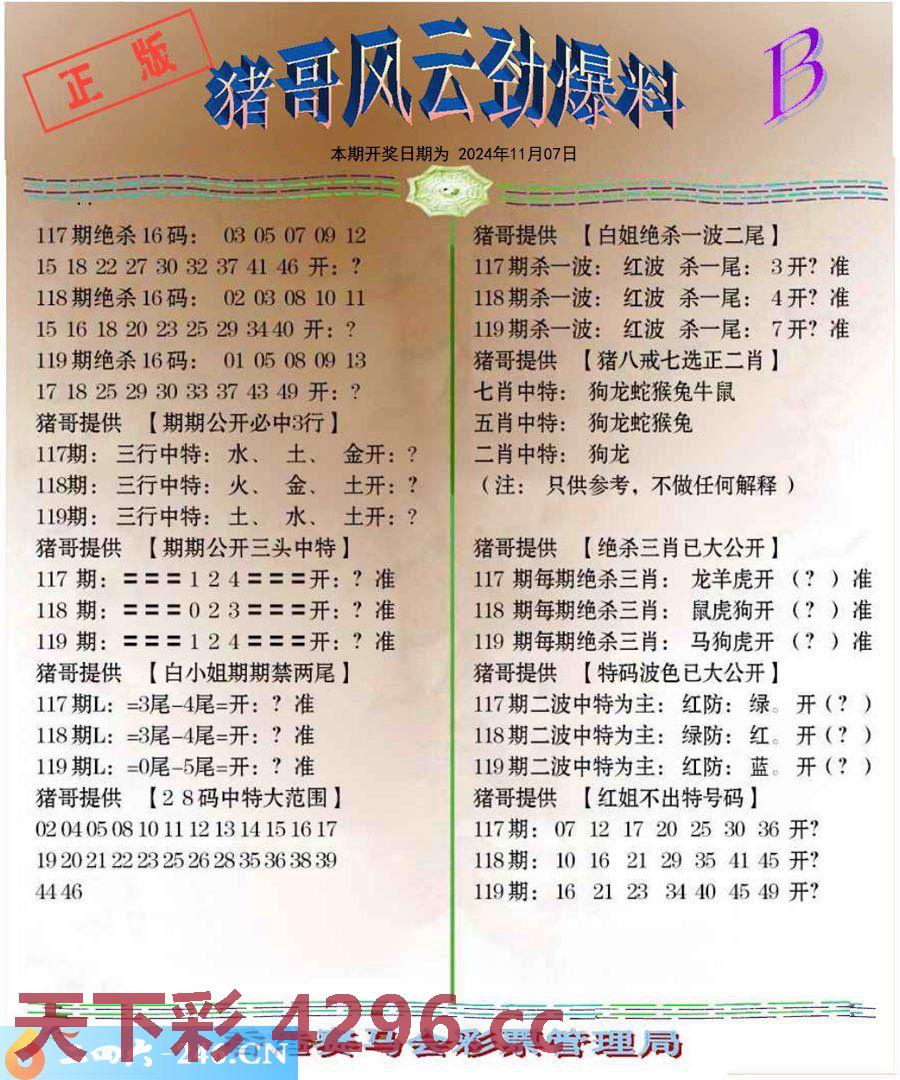 正版
猪哥风云劲爆料
B
本期开奖日期为 2024年11月07日
117期绝杀16码： 03 05 07 09 12
15 18 22 27 30 32 37 41 46 开：？
118期绝杀16码： 02 03 08 10 11
15 16 18 20 23 25 29 34 40 开：？
119期绝杀16码： 01 05 08 09 13
17 18 25 29 30 33 37 43 49 开：？
猪哥提供 【期期公开必中3行】
117期：三行中特：水、 土、 金开：？
118期：三行中特：火、 金、 土开：？
119期：三行中特：土、 水、 土开：？
猪哥提供 【期期公开三头中特】
117 期：〓〓〓1 2 4〓〓〓开：？准
118 期：〓〓〓0 2 3〓〓〓开：？准
119 期：〓〓〓1 2 4〓〓〓开：？准
猪哥提供 【白小姐期期禁两尾】
117期L：=3尾-4尾=开：？准
118期L：=3尾-4尾=开：？准
119期L：=0尾-5尾=开：？准
猪哥提供 【28码中特大范围】
02 04 05 08 10 11 12 13 14 15 16 17
19 20 21 22 23 25 26 28 35 36 38 39
44 46
猪哥提供 【白姐绝杀一波二尾】
117期杀一波： 红波 杀一尾： 3开？准
118期杀一波： 红波 杀一尾： 4开？准
119期杀一波： 红波 杀一尾： 7开？准
猪哥提供 【猪八戒七选正二肖】
七肖中特： 狗龙蛇猴兔牛鼠
五肖中特： 狗龙蛇猴兔
二肖中特： 狗龙
（注： 只供参考，不做任何解释）
猪哥提供 【绝杀三肖已大公开】
117 期每期绝杀三肖： 龙羊虎开 （？）准
118 期每期绝杀三肖： 鼠虎狗开 （？）准
119 期每期绝杀三肖： 马狗虎开 （？）准
猪哥提供 【特码波色已大公开】
117期二波中特为主：红防：绿。开（？）
118期二波中特为主：绿防：红。开（？）
119期二波中特为主：红防：蓝。开（？）
猪哥提供 【红姐不出特号码】
117期：07 12 17 20 25 30 36 开？
118期：10 16 21 29 35 41 45 开？
119期：16 21 23 34 40 45 49 开？
天下彩 4296.cc
二四六-246.CN
马会彩票管理局